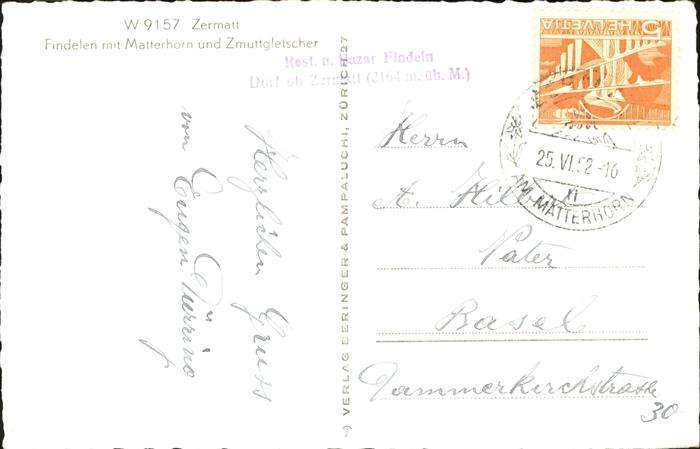 W 9157 Zermatt
Findelen mit Matterhorn und Zmuttgletscher
Rest. u. Bazar Findeln
Dorf ob Zermatt (2164 m. üb. M.)
Herzlichen Gruss
von Eugen
VERLAG BERINGER & PAMPALUCHI, ZÜRICH 27
5
HELVETIA
25. VI. 52 -16
XI
AM MATTERHORN
Herrn
A. Hill
Vater
Basel
Dammerkirchstrasse
30